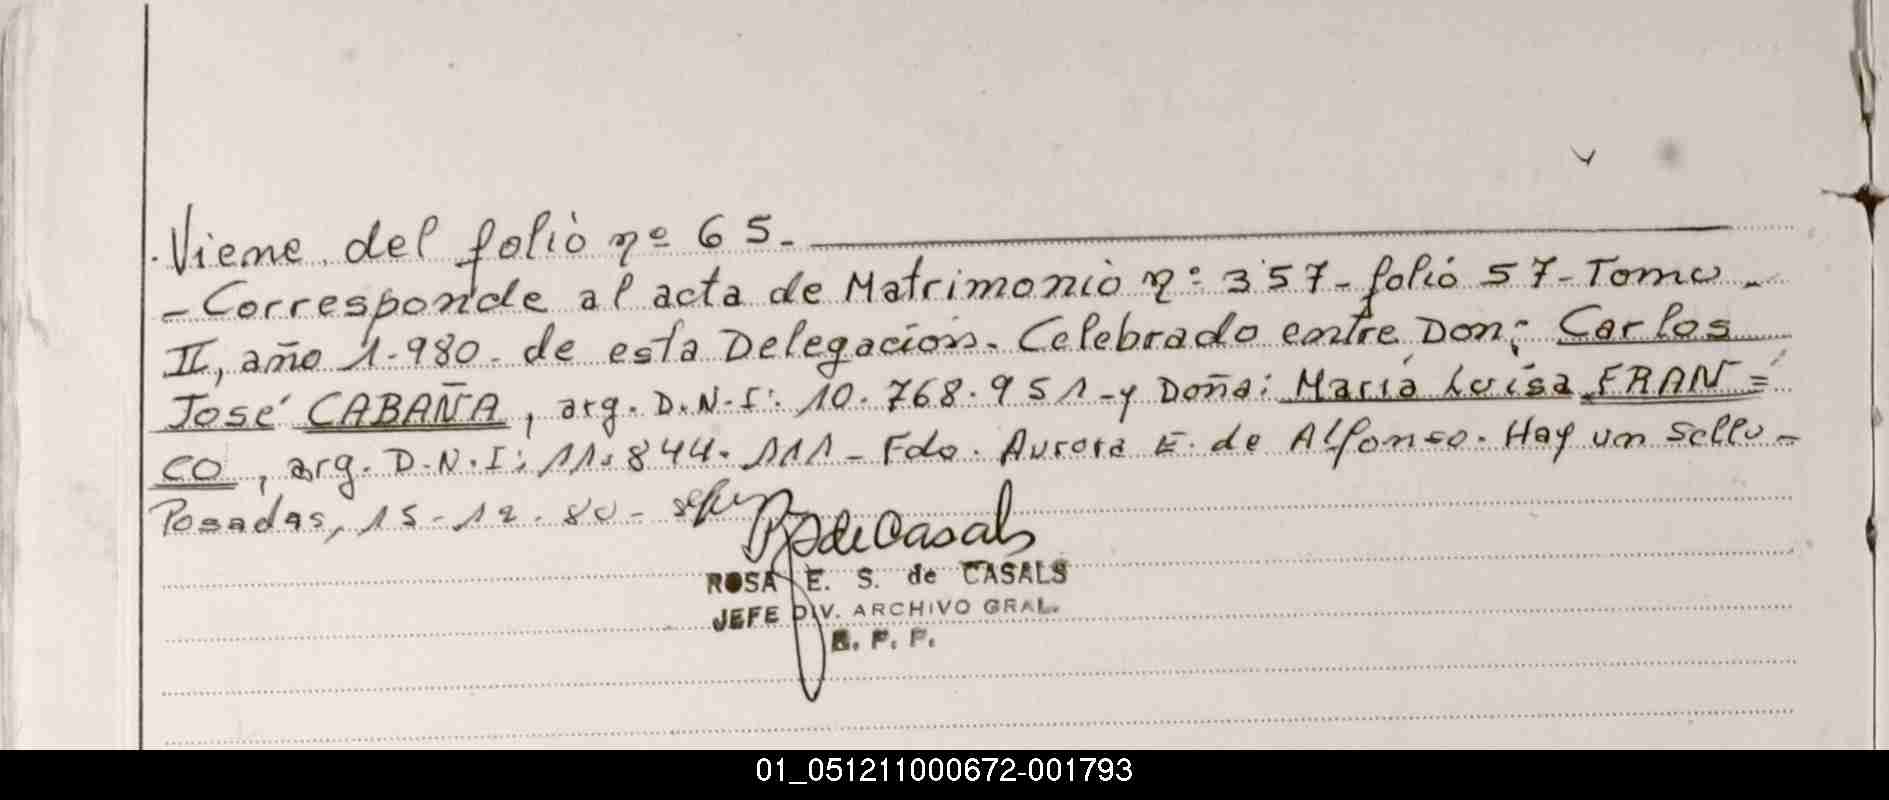 . Viene. del folio nº 65.-
- Corresponde al acta de Matrimonio nº 357- folio 57- Tomo -
II, año 1.980- de esta Delegación. Celebrado entre Don: Carlos
José CABAÑA, arg. D.N.I: 10.768.951-y Doña: María Luisa FRAN=
CO, arg. D.N.I: 11.844.111- Fdo. Aurora E. de Alfonso. Hay un sello-
Posadas, 15-12-80-
RS de Casals
ROSA E. S. de CASALS
JEFE DIV. ARCHIVO GRAL.
R. P. P.
01_051211000672-001793